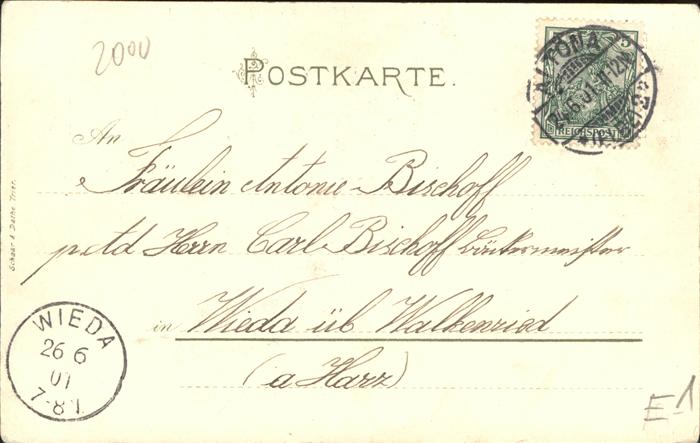 2000
POSTKARTE.
ALTONA
6.01.
5
REICHSPOST
An
Fräulein Antonie Bischoff
Herrn Carl Bischoff Bäckermeister
in Wieda üb Walkenried
(a Harz)
Schaar & Dathe, Trier.
WIEDA
26 6
01
7-8
E-1